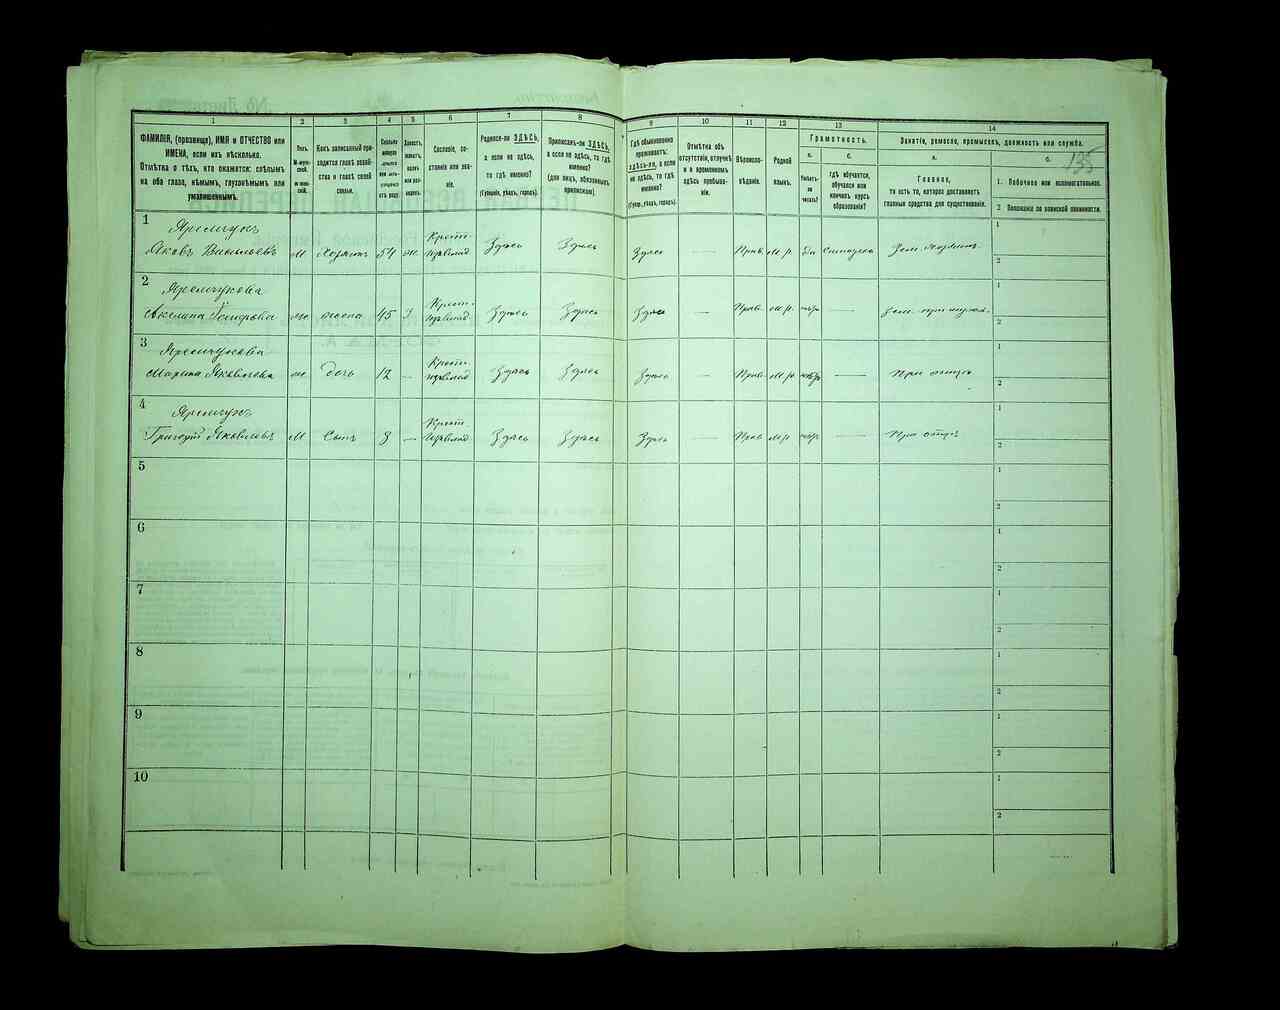 135
1 2 3 4 5 6 7 8 9 10 11 12 13 14
ФАМИЛІЯ, (прозвище), ИМЯ и ОТЧЕСТВО или
ИМЕНА, если ихъ нѣсколько.
Отмѣтка о тѣхъ, кто окажется: слѣпымъ
на оба глаза, нѣмымъ, глухонѣмымъ или
умалишеннымъ.
Полъ.
Какъ записанный при-
ходится главѣ хозяй-
ства и главѣ своей
семьи.
Сословіе, со-
стояніе или зва-
ніе.
Родился-ли ЗДѢСЬ,
а если не здѣсь,
то гдѣ именно?
(Губернія, уѣздъ, городъ).
Приписанъ-ли ЗДѢСЬ,
а если не здѣсь, то гдѣ
именно?
(для лицъ, обязанныхъ
припискою).
Гдѣ обыкновенно
проживаетъ:
здѣсь-ли, а если
не здѣсь, то гдѣ
именно?
(Губер., уѣздъ, городъ).
Отмѣтка объ
отсутствіи, отлучкѣ
и о временномъ
здѣсь пребыва-
ніи.
Вѣроиспо-
вѣданіе.
Родной
языкъ.
Грамотность.
а. б.
Умѣетъ-ли
читать?
гдѣ обучается,
обучался или
кончилъ курсъ
образованія?
Занятіе, ремесло, промыселъ, должность или служба.
а. б.
Главное,
то есть то, которое доставляетъ
главныя средства для существованія.
1. Побочное или вспомогательное.
2 Положеніе по воинской повинности.
1 Яремчукъ
Яковъ Васильевъ М Хозяинъ 54 ж Крест. Здѣсь Здѣсь Здѣсь — Прав. М.р. Да Зем. хозяинъ
1
2
2 Яремчукова
Акелина жена 45 Крест. Здѣсь Здѣсь Здѣсь — Прав. М.р. — Зем. при мужѣ
1
2
3 Яремчукова
Марина Яковлева ж дочь 12 — Крест. Здѣсь Здѣсь Здѣсь — Прав. М.р. — При отцѣ
1
2
4 Яремчукъ
Григорій Яковлевъ М Сынъ 8 — Крест. Здѣсь Здѣсь Здѣсь — Прав. М.р. — При отцѣ
1
2
5
1
2
6
1
2
7
1
2
8
1
2
9
1
2
10
1
2